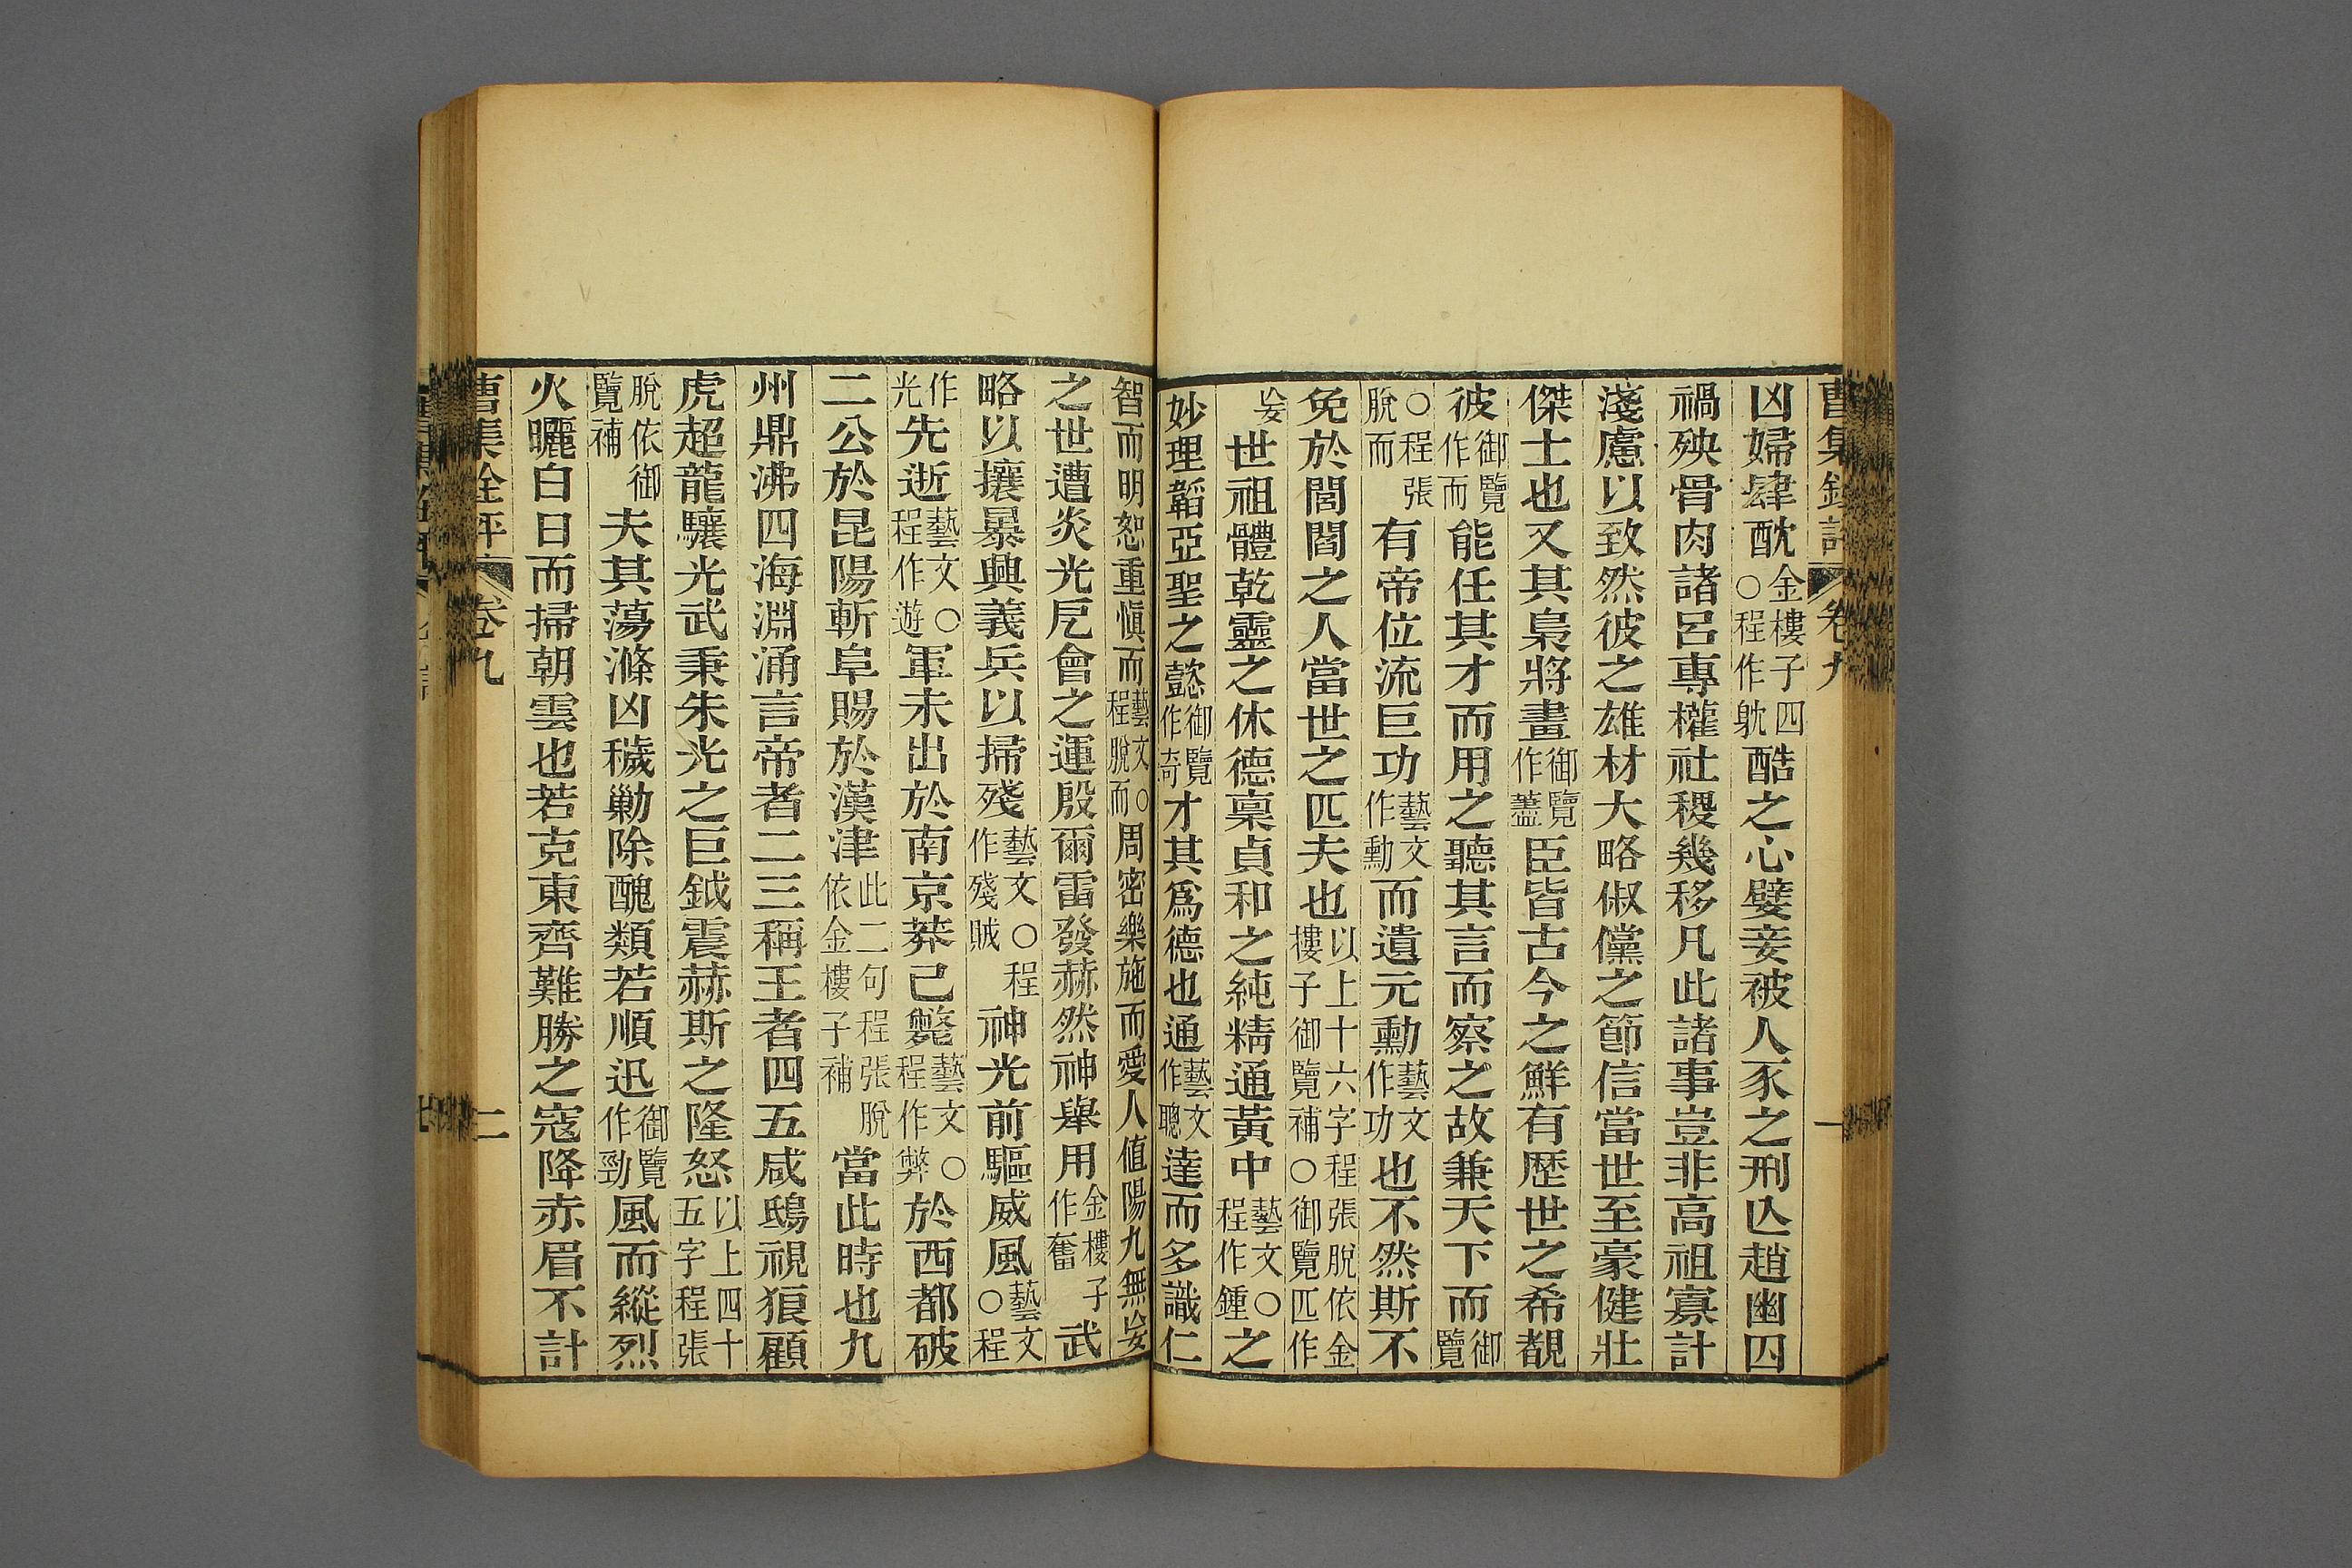 曹集銓評 卷九 一
凶婦肆酖金樓子四○程作躭酷之心嬖妾被人豕之刑亾趙幽囚
禍殃骨肉諸呂專權社稷幾移凡此諸事豈非高祖寡計
淺慮以致然彼之雄材大略俶儻之節信當世至豪健壯
傑士也又其梟將畫御覽作藎臣皆古今之鮮有歷世之希覩
彼御覽作而能任其才而用之聽其言而察之故兼天下而御覽
○程張脫而有帝位流巨功藝文作勳而遺元勳藝文作功也不然斯不
免於閭閻之人當世之匹夫也以上十六字程張脫依金樓子御覽補○御覽匹作
妄世祖體乾靈之休德稟貞和之純精通黃中藝文○程作鍾之
妙理韜亞聖之懿御覽作奇才其爲德也通藝文作聰達而多識仁
智而明恕重愼而藝文○程脫而周密樂施而愛人值陽九無妄
之世遭炎光厄會之運殷爾雷發赫然神舉用金樓子作奮武
略以攘暴興義兵以掃殘藝文○程作殘賊神光前驅威風藝文○程
作光先逝藝文○程作遊軍未出於南京莽已斃藝文○程作弊於西都破
二公於昆陽斬阜賜於漢津此二句程張脫依金樓子補當此時也九
州鼎沸四海淵涌言帝者二三稱王者四五咸鴟視狼顧
虎超龍驤光武秉朱光之巨鉞震赫斯之隆怒以上四十五字程張
脫依御覽補夫其蕩滌凶穢勦除醜類若順迅御覽作勁風而縱烈
火曬白日而掃朝雲也若克東齊難勝之寇降赤眉不計
曹集銓評 卷九 二